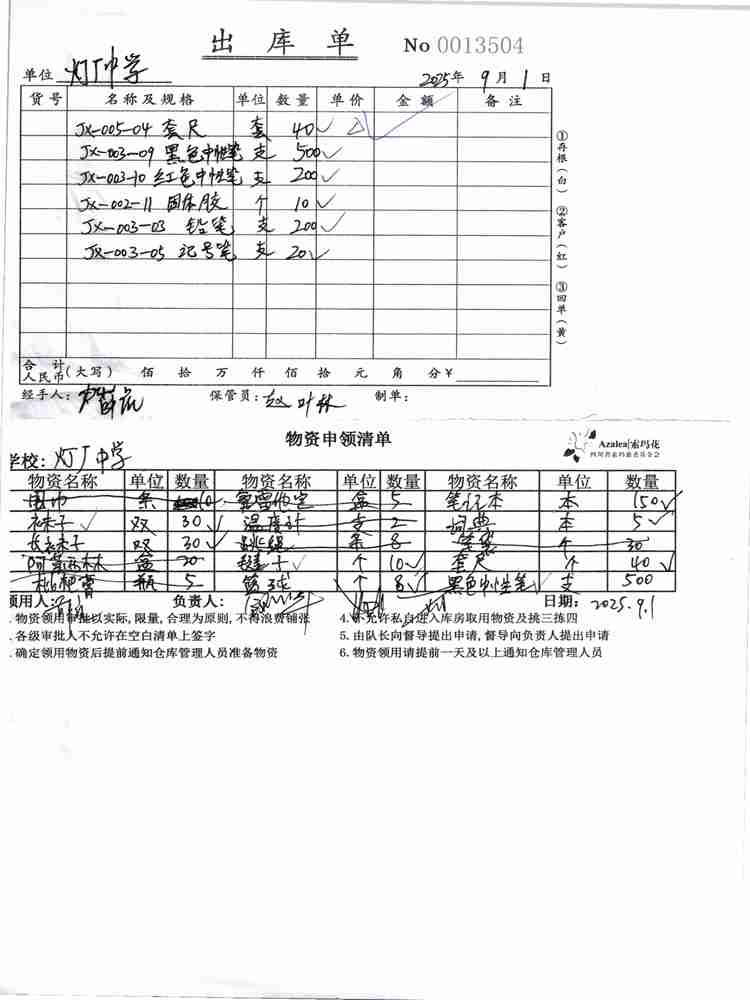 出库单 No 0013504
单位 灯厂中学 2025年 9月 1日
货号 名称及规格 单位 数量 单价 金额 备注
JX-005-04 套尺 套 40✓
JX-003-09 黑色中性笔 支 500✓
JX-003-10 红色中性笔 支 200✓
JX-002-11 固体胶 个 10✓
JX-003-03 铅笔 支 200✓
JX-003-05 记号笔 支 20✓
①存根(白) ②客户(红) ③回单(黄)
合计人民币(大写) 佰 拾 万 仟 佰 拾 元 角 分¥
经手人: 保管员:赵叶林 制单:
物资申领清单
Azalea|索玛花
学校: 灯厂中学
物资名称 单位 数量 物资名称 单位 数量 物资名称 单位 数量
围巾 条 10 盒 5 笔记本 本 150✓
袜子✓ 双 30✓ 温度计 支 2 词典 本 5✓
长袜子 双 30✓ 跳绳 条 8 个 30
阿莫西林 盒 20 毽子 个 10✓ 套尺 个 40✓
枇杷膏 瓶 5 篮球 个 8✓ 黑色中性笔✓ 支 500
领用人: 负责人: 日期: 2025.9.1
.物资领用审批以实际,限量,合理为原则,不得浪费铺张 4.不允许私自进入库房取用物资及挑三拣四
.各级审批人不允许在空白清单上签字 5.由队长向督导提出申请,督导向负责人提出申请
.确定领用物资后提前通知仓库管理人员准备物资 6.物资领用请提前一天及以上通知仓库管理人员